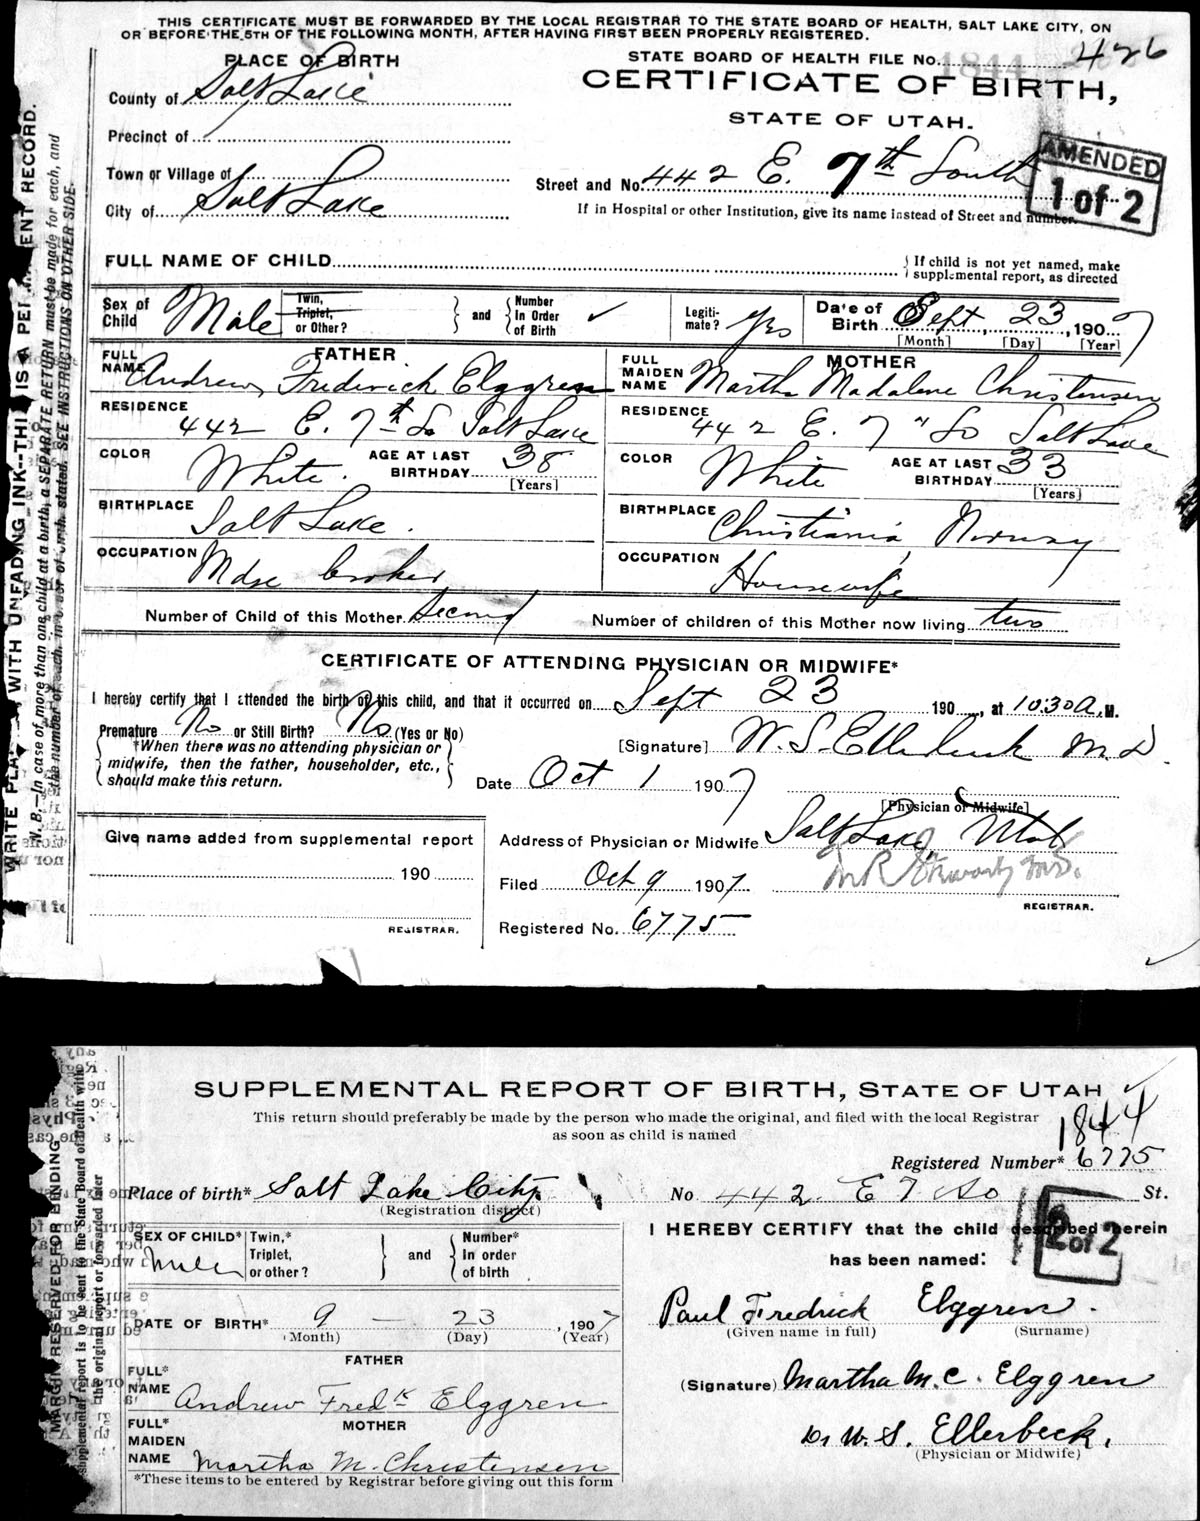 THIS CERTIFICATE MUST BE FORWARDED BY THE LOCAL REGISTRAR TO THE STATE BOARD OF HEALTH, SALT LAKE CITY, ON
OR BEFORE THE 5TH OF THE FOLLOWING MONTH, AFTER HAVING FIRST BEEN PROPERLY REGISTERED.
PLACE OF BIRTH
STATE BOARD OF HEALTH FILE No. 1844 426
County of Salt Lake
CERTIFICATE OF BIRTH,
STATE OF UTAH.
Precinct of
AMENDED
1 of 2
Town or Village of
Street and No. 442 E. 7th South
City of Salt Lake
If in Hospital or other Institution, give its name instead of Street and number.
FULL NAME OF CHILD
If child is not yet named, make
supplemental report, as directed
Sex of Child Male
Twin, Triplet, or Other?
and
Number In Order of Birth ✓
Legitimate? Yes
Date of Birth Sept, 23, 1907
[Month] [Day] [Year]
FATHER
FULL NAME Andrew Frederick Elggren
MOTHER
FULL MAIDEN NAME Martha Madalene Christensen
RESIDENCE 442 E. 7th So Salt Lake
RESIDENCE 442 E. 7" So Salt Lake
COLOR White. AGE AT LAST BIRTHDAY 38 [Years]
COLOR White AGE AT LAST BIRTHDAY 33 [Years]
BIRTHPLACE Salt Lake.
BIRTHPLACE Christiania, Norway
OCCUPATION Mdse broker
OCCUPATION Housewife
Number of Child of this Mother Second
Number of children of this Mother now living two
CERTIFICATE OF ATTENDING PHYSICIAN OR MIDWIFE*
I hereby certify that I attended the birth of this child, and that it occurred on Sept 23 190 , at 10:30 A.M.
Premature No or Still Birth? No (Yes or No)
*When there was no attending physician or
midwife, then the father, householder, etc.,
should make this return.
[Signature] W. S. Ellerbeck M.D.
Date Oct 1 1907
[Physician or Midwife]
Give name added from supplemental report
190
REGISTRAR.
Address of Physician or Midwife Salt Lake, Utah
Filed Oct 9 1907
REGISTRAR.
Registered No. 6775
WRITE PLAINLY WITH UNFADING INK--THIS IS A PERMANENT RECORD.
N. B.—In case of more than one child at a birth, a SEPARATE RETURN must be made for each, and
the number of each, in order of birth, stated. SEE INSTRUCTIONS ON OTHER SIDE.
SUPPLEMENTAL REPORT OF BIRTH, STATE OF UTAH
This return should preferably be made by the person who made the original, and filed with the local Registrar
as soon as child is named
1844
Registered Number* 6775
Place of birth* Salt Lake City
(Registration district)
No 442 E 7 So St.
2 of 2
SEX OF CHILD* Male
Twin,* Triplet, or other?
and
Number* In order of birth
I HEREBY CERTIFY that the child described herein
has been named:
DATE OF BIRTH* 9 — 23, 1907
(Month) (Day) (Year)
Paul Fredrick Elggren.
(Given name in full) (Surname)
FATHER
FULL* NAME Andrew Fredk Elggren
(Signature) Martha M. C. Elggren
MOTHER
FULL* MAIDEN NAME Martha M. Christensen
Dr W. S. Ellerbeck.
(Physician or Midwife)
*These items to be entered by Registrar before giving out this form
MARGIN RESERVED FOR BINDING
supplemental report is to be sent to the State Board of Health with
the original report or forwarded later